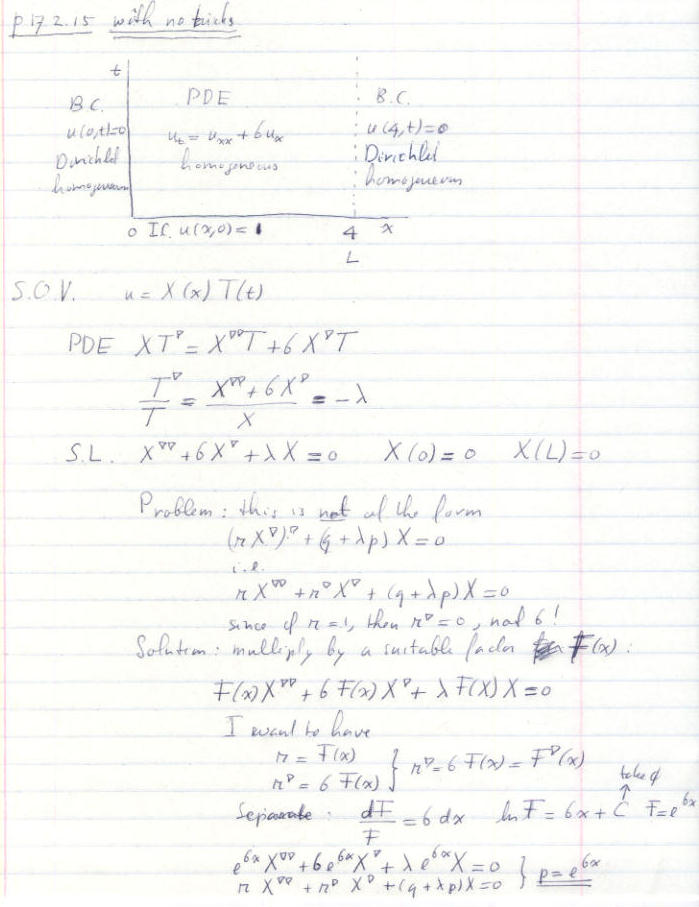 p 17.2.15 with no tricks
t
B.C. PDE B.C.
u(0,t)=0 u_t = u_xx + 6u_x u(4,t)=0
Dirichlet homogeneous Dirichlet
homogeneous homogeneous
0 I.C. u(x,0)= 1 4 x
L
S.O.V. u = X(x) T(t)
PDE XT' = X''T + 6X'T
T'/T = (X'' + 6X')/X = -λ
S.L. X'' + 6X' + λX = 0 X(0) = 0 X(L) = 0
Problem: this is not of the form
(rX')' + (q + λp) X = 0
i.e.
rX'' + r'X' + (q + λp) X = 0
since if r = 1, then r' = 0, not 6!
Solution: multiply by a suitable factor F(x):
F(x)X'' + 6 F(x) X' + λ F(X) X = 0
I want to have
r = F(x)
r' = 6 F(x) } r' = 6 F(x) = F'(x)
take ∅
↑
Separate: dF/F = 6 dx ln F = 6x + C F = e^6x
e^6x X'' + 6e^6x X' + λ e^6x X = 0
r X'' + r' X' + (q + λp) X = 0 } p = e^6x